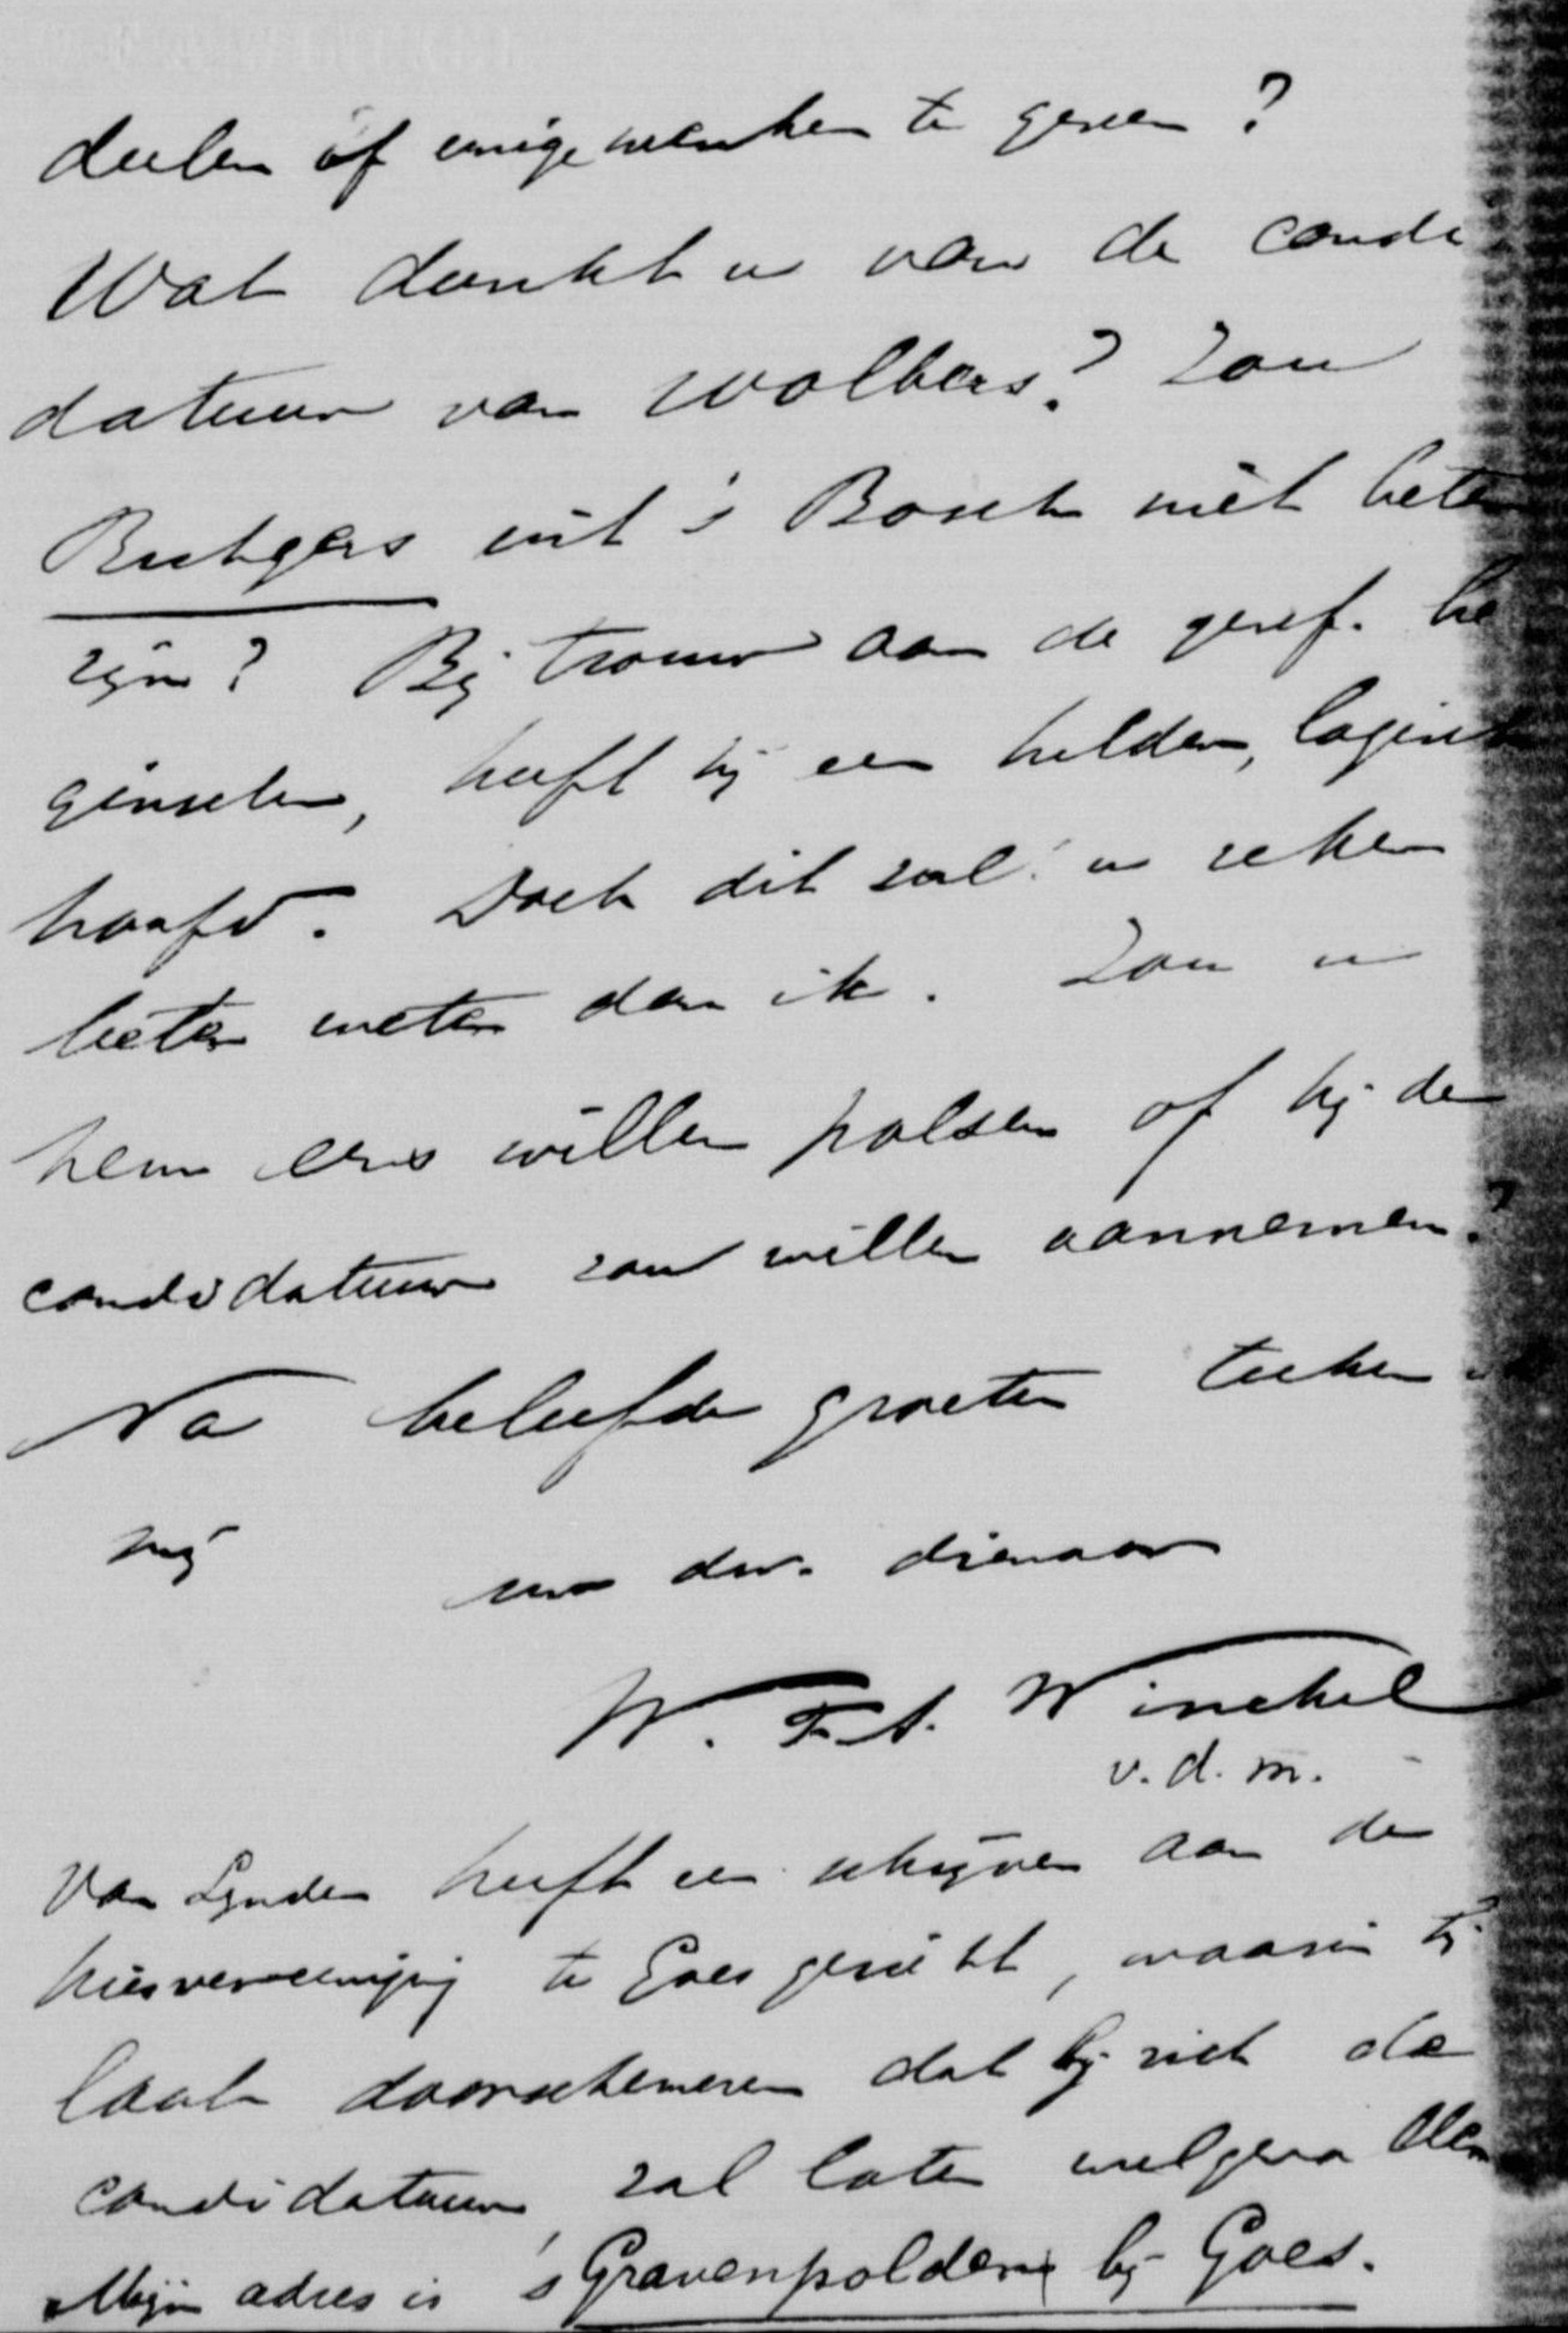 deelen of eenige wenken te geven?
Wat dunkt u van de candi
datuur van Wolbers? Zou
Rutgers uit 's Bosch niet beter
zijn? Bij trouw aan de geref. be
ginselen, heeft hij een helder, logisch
hoofd. Doch dit zal u zeker
beter weten dan ik. Zou u
hem eens willen polsen of hij de
candidatuur zou willen aannemen?
Na beleefde groeten teeken
mij
uw dw. dienaar
W. F. A. Winckel
v. d. m.
Van Lynden heeft een schrijven aan de
kiesvereeniging te Goes gericht, waarin hij
laat doorschemeren dat hij zich de
candidatuur zal laten welgevallen
Mijn adres is 's Gravenpolder bij Goes.